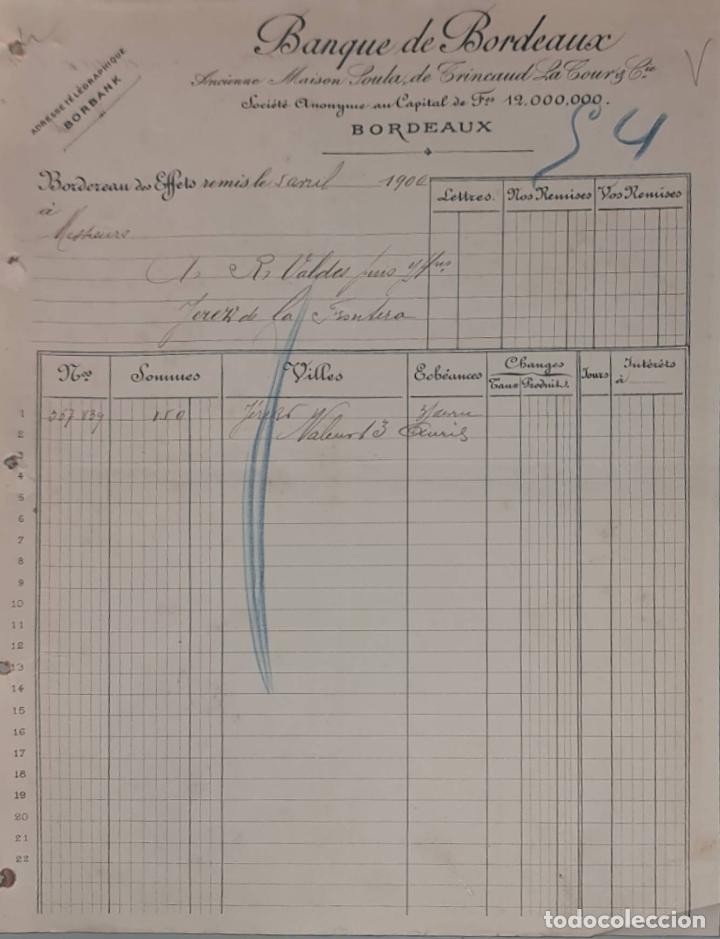 Banque de Bordeaux
Ancienne Maison Soula, de Trincaud La Tour & Cie
Société Anonyme au Capital de Frs 12.000.000.
BORDEAUX
ADRESSE TÉLÉGRAPHIQUE
BORBANK
54
Bordereau des Effets remis le 5 avril 190
à Messieurs
A. R. Valdes
Jerez de la Frontera
Lettres. Nos Remises Vos Remises
Nos Sommes Villes Echéances Changes Taux Produits. Jours Intérêts à
1 150 Jerez
2 Valeur 13 avril
3
4
5
6
7
8
9
10
11
12
13
14
15
16
17
18
19
20
21
22
todocoleccion